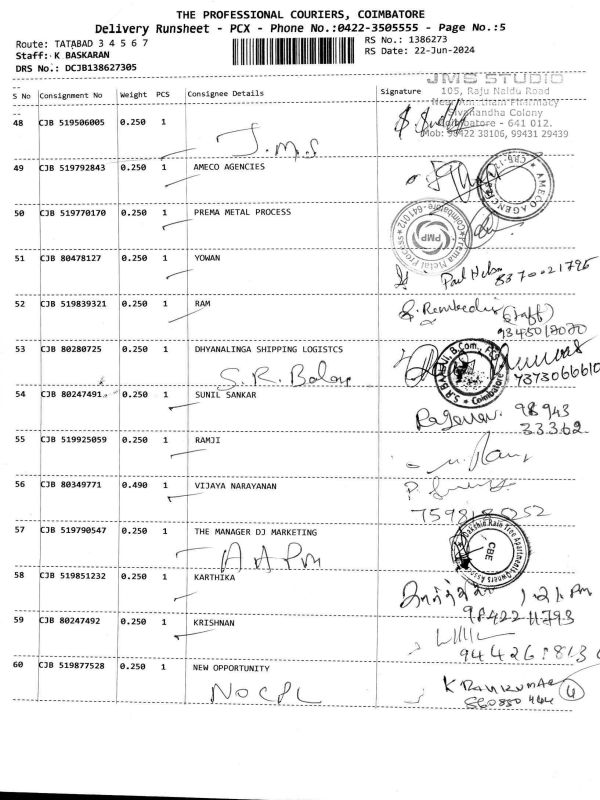 THE PROFESSIONAL COURIERS, COIMBATORE
Delivery Runsheet - PCX - Phone No.:0422-3505555 - Page No.:5
Route: TATABAD 3 4 5 6 7
RS No.: 1386273
Staff: K BASKARAN
RS Date: 22-Jun-2024
DRS No.: DCJB138627305
S No Consignment No Weight PCS Consignee Details Signature
JMS STUDIO
105, Raju Naidu Road
Pharmacy
Sivanandha Colony
Coimbatore - 641 012.
Mob: 98422 38106, 99431 29439
48 CJB 519506005 0.250 1
J.M.S
49 CJB 519792843 0.250 1 AMECO AGENCIES
AMECO AGENCIES
50 CJB 519770170 0.250 1 PREMA METAL PROCESS
Prema Metal Process
Coimbatore-641012
PMP
51 CJB 80478127 0.250 1 YOWAN
8370021795
52 CJB 519839321 0.250 1 RAM
(staff)
9345018070
53 CJB 80280725 0.250 1 DHYANALINGA SHIPPING LOGISTCS
S.R. Balaji
S.R BALAJI, B.Com.,
Coimbatore
7373066610
54 CJB 80247491 0.250 1 SUNIL SANKAR
98943
33362
55 CJB 519925059 0.250 1 RAMJI
56 CJB 80349771 0.490 1 VIJAYA NARAYANAN
57 CJB 519790547 0.250 1 THE MANAGER DJ MARKETING
Rain Tree Apartments Owners
CBE
58 CJB 519851232 0.250 1 KARTHIKA
98422 11793
59 CJB 80247492 0.250 1 KRISHNAN
60 CJB 519877528 0.250 1 NEW OPPORTUNITY
NOCPL